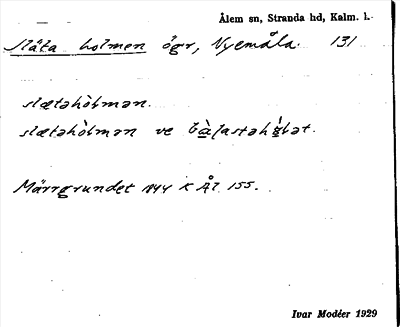 Ålem sn, Stranda hd, Kalm. l.
Släta holmen ögr, Nyemåla. 131
slætəhòlmən.
slætəhòlmən ve
Märrgrundet NV K Ål 155.
Ivar Modéer 1929